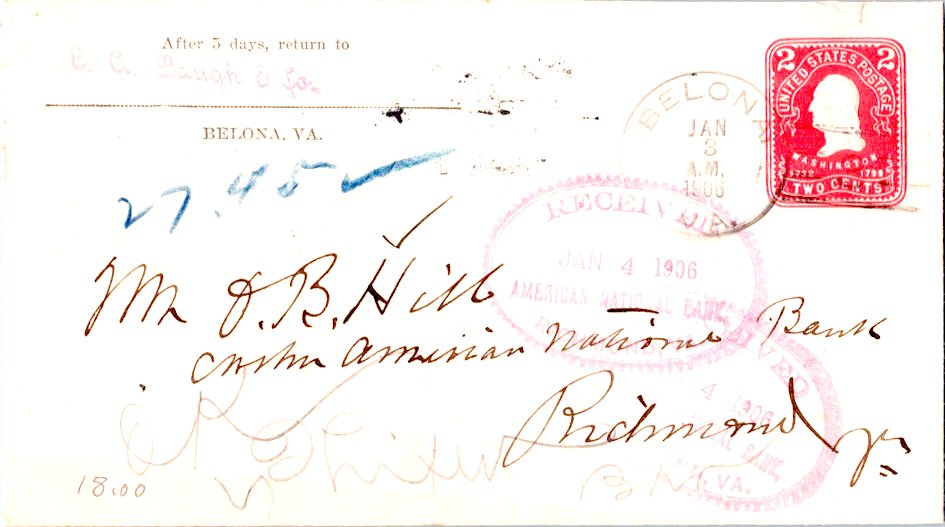 After 5 days, return to
E. A. Baugh & Co.
BELONA, VA.
27.45
BELONA
JAN
3
A.M.
1906
VA.
2 2
UNITED STATES POSTAGE
WASHINGTON
1732 1799
TWO CENTS
RECEIVED
JAN 4 1906
AMERICAN NATIONAL BANK,
Mr O. B. Hill
Cashier American National Bank
Richmond Va
RECEIVED
4 1906
AL BANK,
VA.
18.00